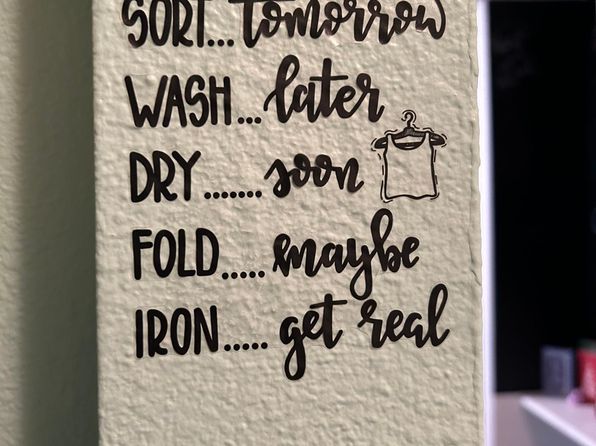 SORT...tomorrow
WASH...later
DRY.......soon
FOLD.....maybe
IRON.....get real